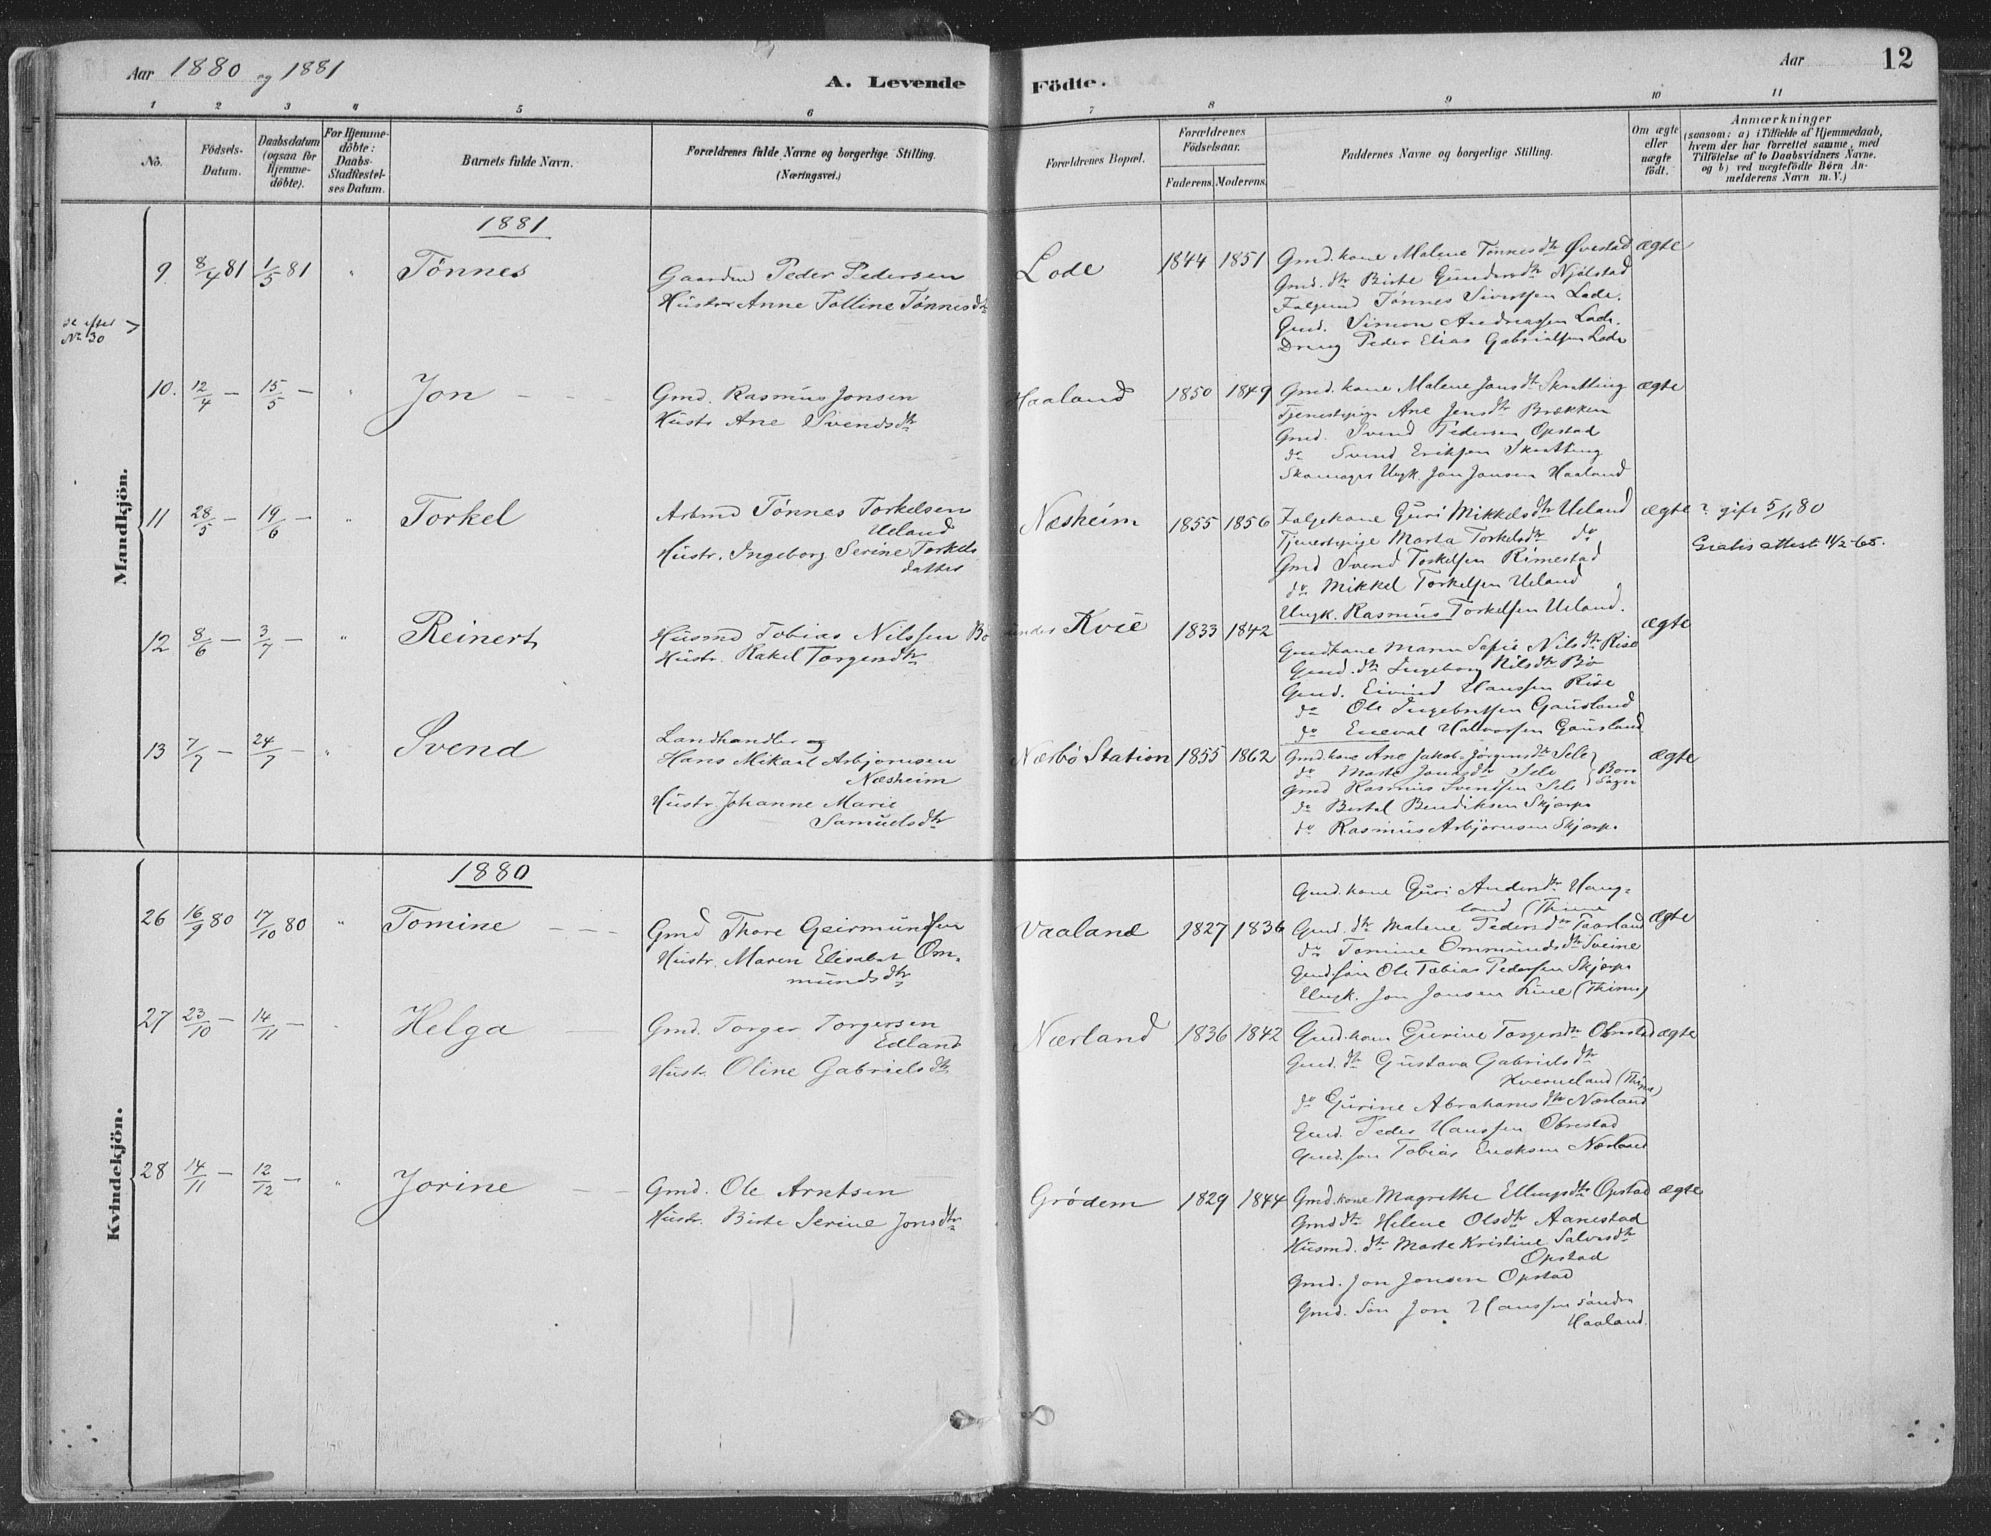 Aar 1880 og 1881
A. Levende Födte.
Aar
12
1 2 3 4 5 6 7 8 9 10 11
No.
Födsels-Datum.
Daabsdatum (ogsaa för Hjemme-döbte).
For Hjemme-döbte: Daabs-Stadfestel-ses Datum.
Barnets fulde Navn.
Forældrenes fulde Navne og borgerlige Stilling.
(Næringsvei.)
Forældrenes Bopæl.
Forældrenes Födselsaar.
Faderens. Moderens.
Faddernes Navne og borgerlige Stilling.
Om ægte eller uægte födt.
Anmærkninger
(saasom: a) i Tilfælde af Hjemmedaab,
hvem der har forrettet samme, med
Tilföielse af to Daabsvidners Navne.
og b) ved uægtefödte Börn An-
melderens Navn m. V.)
Mandkjön.
1881
9. 8/4 81 1/5 81 " Tönnes
Gaardmd Peder Pedersen
Hustr Anne Talline Tönnesdtr
Lode 1844 1851
Gmd. kone Malene Tönnesdtr Övestad
Gmd. dtr Birte Gundersdtr Njölstad
Falgmd Tönnes Sivertsen Lode.
Gmd. Simon Andreassen Lode.
Dreng Peder Elias Gabrielsen Lode
ægte
se efter
No 30
10. 12/4 — 15/5 — " Jon
Gmd. Rasmus Jonsen
Hustr Ane Svendsdtr
Haaland 1850 1849
Gmd. kone Malene Jonsdtr Skratting
Tjenestepige Ane Jensdtr Brækken
Gmd. Svend Pedersen Opstad
do Svend Eriksen Skratting
Skomager Ungk. Jon Jonsen Haaland
ægte
11 28/5 — 19/6 — " Torkel
Arbmd Tönnes Torkelsen
Ueland
Hustr. Ingeborg Serine Torkels
datter
Næsheim 1855 1856
Falgekone Guri Mikkelsdtr Ueland
Tjenestepige Marta Torkelsdtr do
Gmd Svend Torkelsen Rimestad
do Mikkel Torkelsen Ueland
Ungk. Rasmus Torkelsen Ueland.
ægte ? gift 5/11 80
Gratis attest 11/2-65.
12 8/6 — 3/7 — " Reinert
Husmd Tobias Nilssen Bö
Hustr. Rakel Torgersdtr
under Kvie 1833 1842
Gmdkone Maren Sofie Nilsdtr Rise
Gmd. dtr Ingeborg Nilsdtr Bö
Gmd. Eivind Hanssen Rise
do Ole Ingebretsen Gausland
do Eneval Halvorsen Gausland
ægte
13 7/7 — 24/7 — " Svend
Landhandler og
Hans Mikael Asbjörnsen
Næsheim
Hustr. Johanne Marie
Samuelsdtr
Nærbö Station 1855 1862
Gmd. kone Ane Jakob. Jörgensdtr Sele
do Marte Jonasdtr Sele
Gmd Rasmus Svendsen Sele
Bore Sogn
do Bertel Bendiksen Skjærpe
do Rasmus Asbjörnsen Skjærpe
ægte
Kvindekjön.
1880
26 16/9 80 17/10 80 " Tomine
Gmd Thore Geirmundsen
Hustr. Maren Elisabet Om-
mundsdtr
Vaaland 1827 1836
Gmd. kone Guri Andersdtr Haug-
land (Thime
Gmd. dtr Malene Pedersdtr Taarland
do Tomine Ommundsdtr Sveine
Gmd. sön Ole Tobias Pedersen Skjærpe
Ungk. Jon Jonsen Line (Thime)
ægte
27 23/10 — 14/11 — Helga
Gmd. Torger Torgersen
Edland
Hustr. Oline Gabrielsdtr
Nærland 1836 1842
Gmd. kone Gurine Torgersdtr Obrestad
Gmd. dtr Gustava Gabrielsdtr
Kverneland (Thime)
do Gurine Abrahamsdtr Nærland
Gmd. Peder Hanssen Obrestad
Gmd. sön Tobias Eriksen Nærland
ægte
28 14/11 — 12/12 — " Jorine
Gmd. Ole Arntsen
Hustr. Birte Serine Jonsdtr
Grödem 1829 1844
Gmd. kone Magrethe Ellingsdtr Opstad
Gmd dtr Helene Olsdtr Aanestad
Husmd. dtr Marte Kristine Salvesdtr
Opstad
Gmd. Jon Jonsen Opstad
Gmd. Sön Jon Hanssen söndre
Haaland
ægte